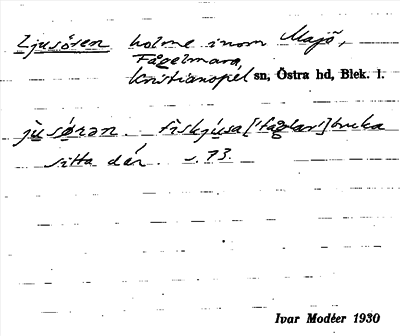 Ljusören holme inom Majö,
Fågelmara,
Kristianopel sn, Östra hd, Blek. l.
jùsøran. fiskjusa ['faglar'] bruka
sitta där. s. 73.
Ivar Modéer 1930